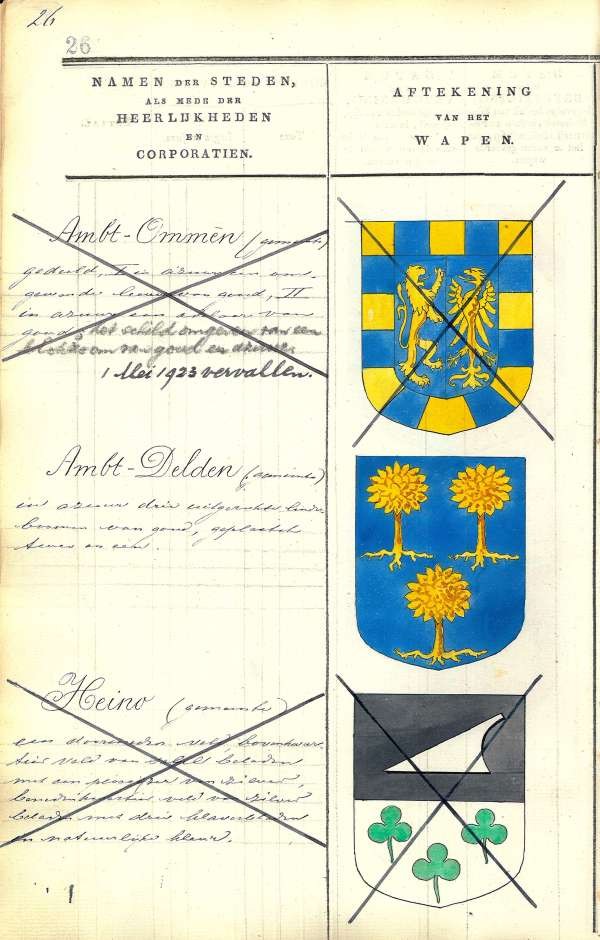 26
26
NAMEN DER STEDEN,
ALS MEDE DER
HEERLIJKHEDEN
EN
CORPORATIEN.
AFTEKENING
VAN HET
WAPEN.
Ambt-Ommen (gemeente)
gedeeld, I in azuur een om-
gewende leeuw van goud, II
in azuur een adelaar van
goud, het schild omgeven van een
blokzoom van goud en azuur
1 Mei 1923 vervallen.
Ambt-Delden (gemeente)
in azuur drie uitgerukte linde-
boomen van goud, geplaatst
twee en een.
Heino (gemeente)
een doorsneden veld, bovenkwar-
tier veld van sabel beladen
met een ploegijzer van zilver,
benedenkwartier veld van zilver
beladen met drie klaverbladen
in natuurlijke kleur.